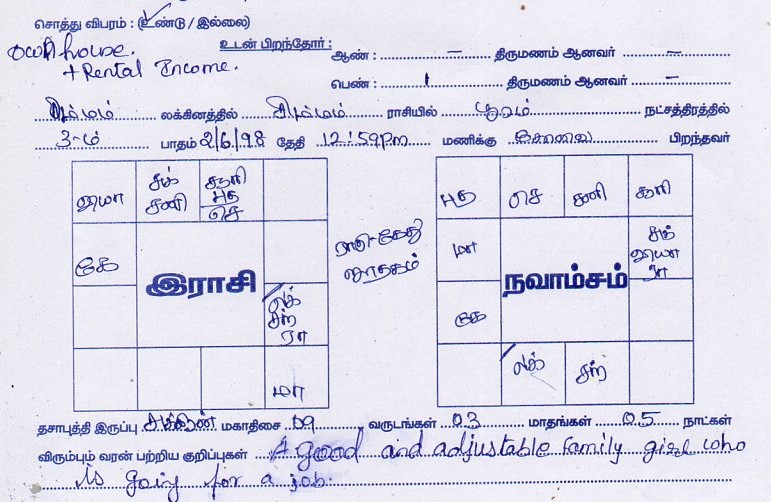 சொத்து விபரம் : (உண்டு / இல்லை)
own house.
+ Rental Income.
உடன் பிறந்தோர் : ஆண் : – திருமணம் ஆனவர் –
பெண் : 1 திருமணம் ஆனவர் –
சிம்மம் லக்கினத்தில் சிம்மம் ராசியில் பூரம் நட்சத்திரத்தில்
3-ம் பாதம் 2/6/98 தேதி 12:59pm மணிக்கு கோவை பிறந்தவர்
சுக் சனி சூரி புத செ
கே
இராசி
லக் சந் ரா
மா
ராகு-கேது ஜாதகம்
புத செ சனி சூரி
மா
நவாம்சம்
சுக்
ரா
கே
லக் சந்
தசாபுத்தி இருப்பு சுக்கிரன் மகாதிசை 09 வருடங்கள் 03 மாதங்கள் 05 நாட்கள்
விரும்பும் வரன் பற்றிய குறிப்புகள் A good and adjustable family girl who
is going for a job.